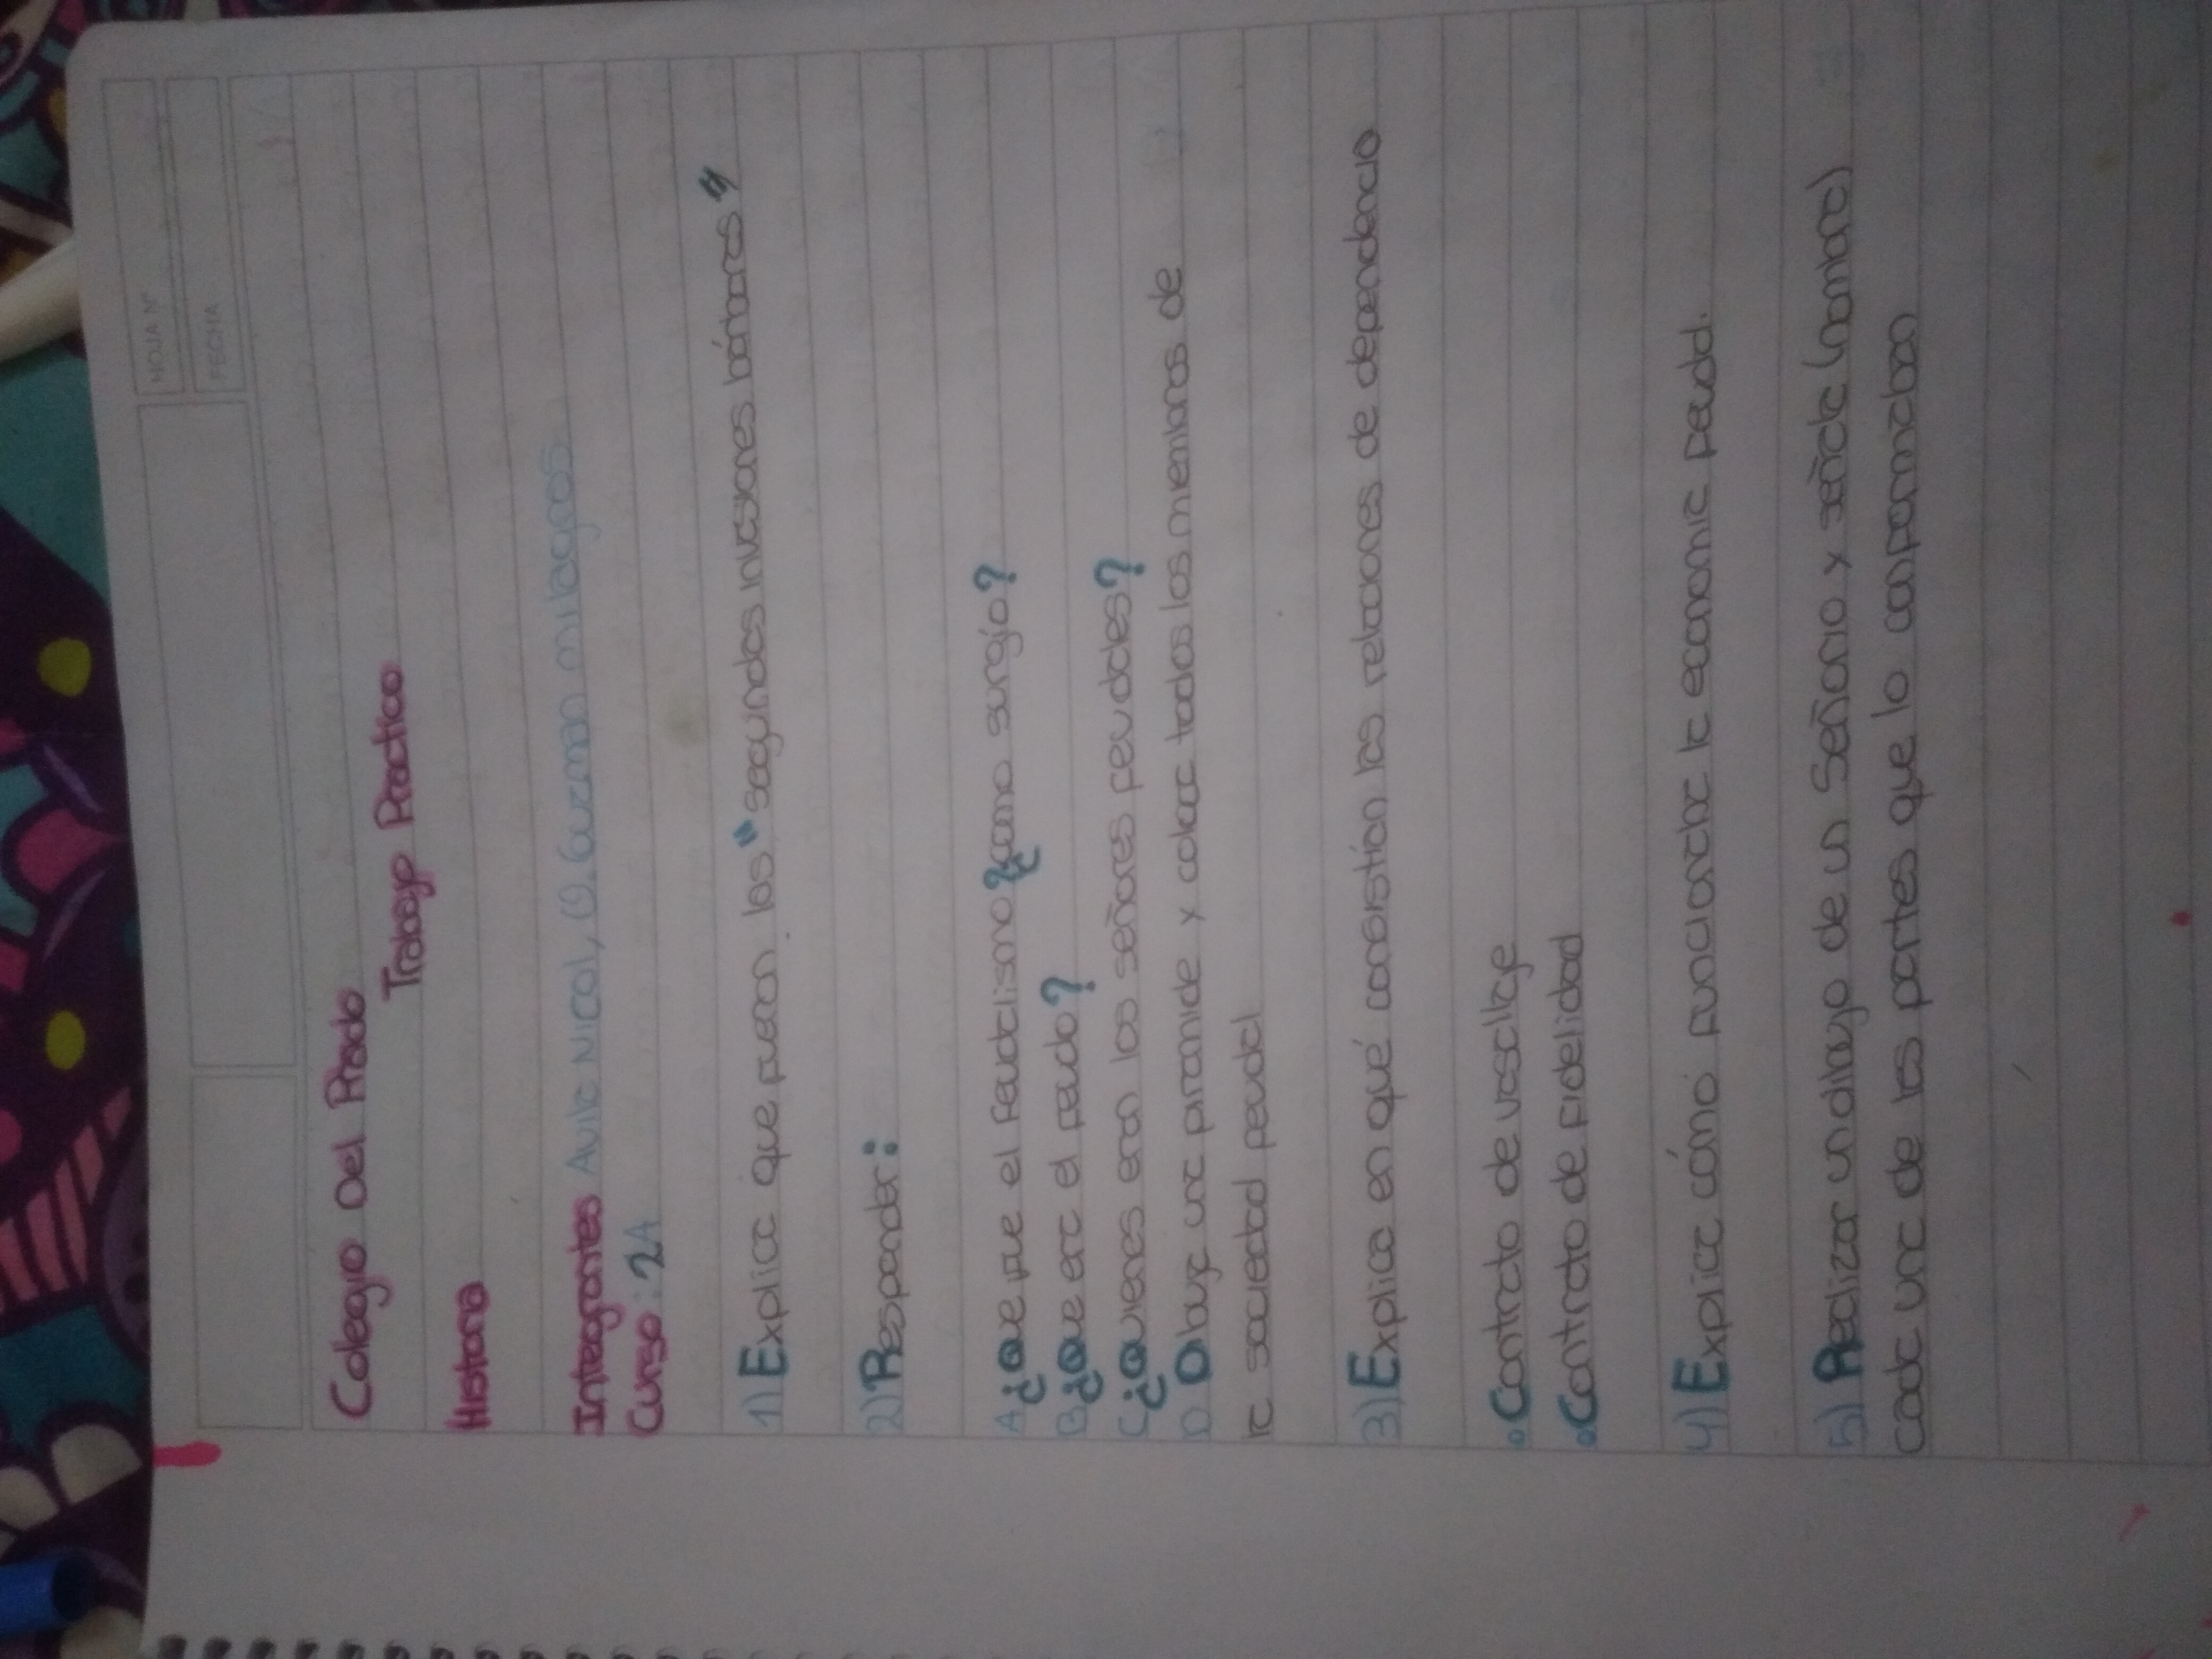 HOJA N°
FECHA
Colegio Del Prado
Trabajo Practico
Historia
Integrantes Avila Nicol, O. Guzman milagros
Curso: 2A
1) Explica que fueron las "segundas invasiones bárbaras"
2) Responder:
A ¿Que fue el feudalismo? ¿como surgío?
B ¿Que era el feudo?
C ¿Quienes eran los señores feudales?
D Dibuja una piramide y coloca todos los miembros de
la sociedad feudal
3) Explica en qué consistían las relaciones de dependencia
• Contrato de vasallaje
• Contrato de fidelidad
4) Explica cómo funcionaba la economia feudal.
5) Realizar un dibujo de un Señorio y señala (nombra)
cada una de las partes que lo conformaban